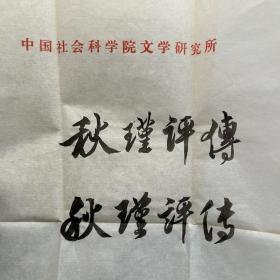 中国社会科学院文学研究所
秋瑾評傳
秋瑾評传